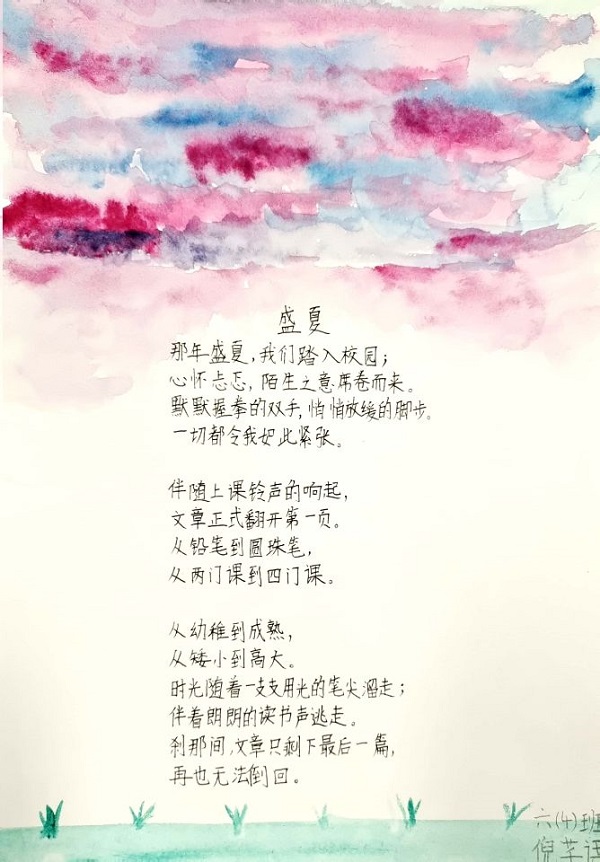 盛夏
那年盛夏,我们踏入校园;
心怀忐忑,陌生之意席卷而来。
默默握拳的双手,悄悄放缓的脚步。
一切都令我如此紧张。
伴随上课铃声的响起,
文章正式翻开第一页。
从铅笔到圆珠笔,
从两门课到四门课。
从幼稚到成熟,
从矮小到高大。
时光随着一支支用光的笔尖溜走;
伴着朗朗的读书声逃走。
刹那间,文章只剩下最后一篇,
再也无法倒回。
六(4)班
倪芷